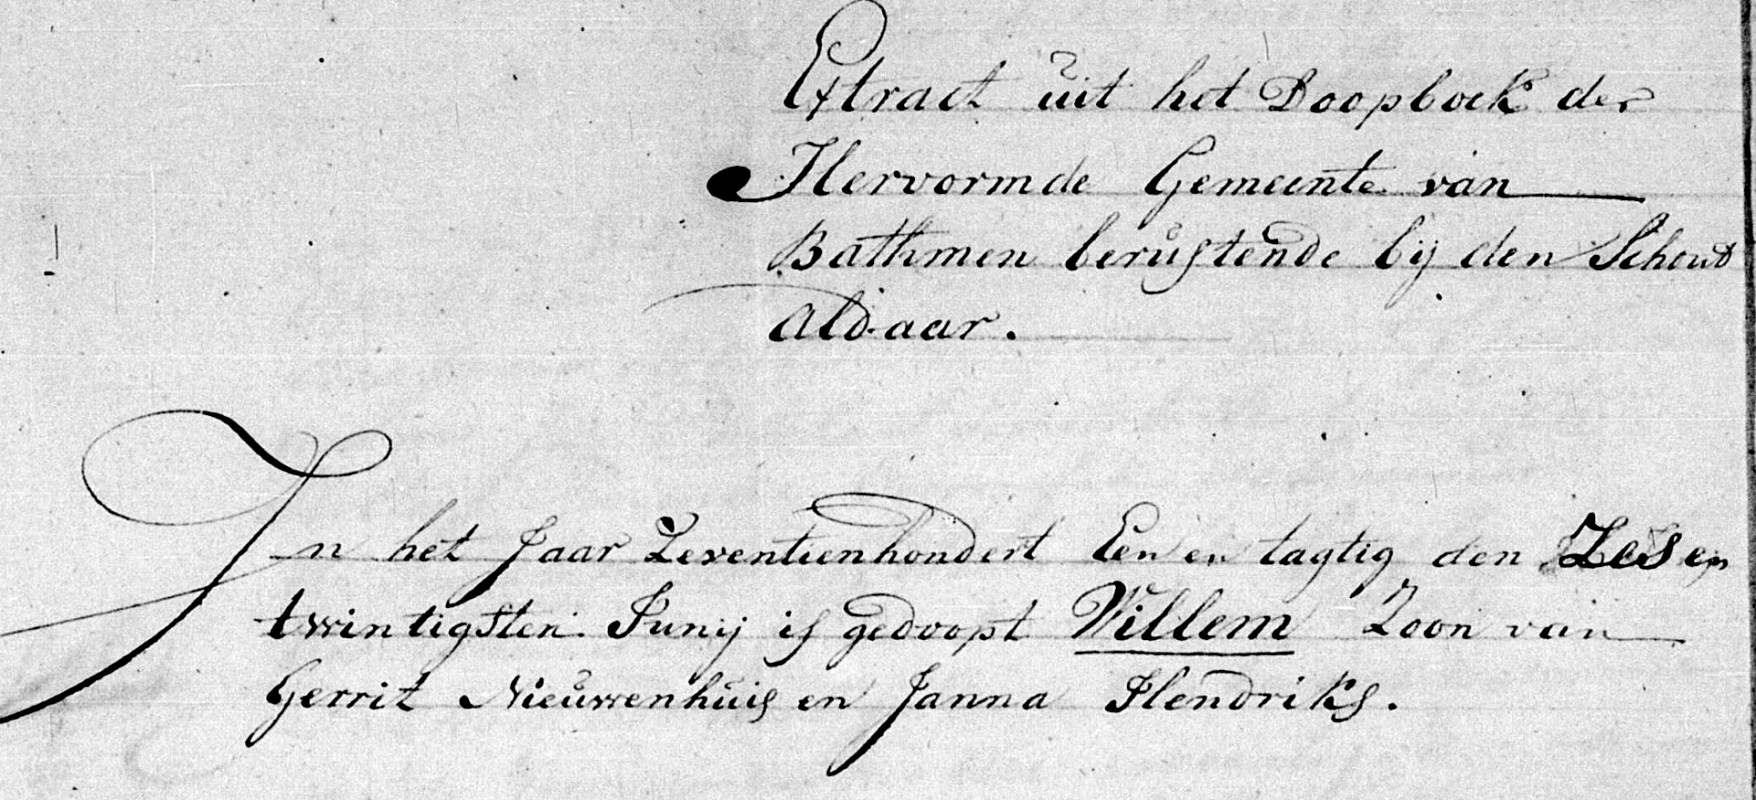 Extract uit het Doopboek der
Hervormde Gemeente van
Bathmen berustende bij den Schout
Aldaar.
In het Jaar Zeventienhondert Een en tagtig den Zes en
twintigsten Junij is gedoopt Willem Zoon van
Gerrit Nieuwenhuis en Janna Hendriks.